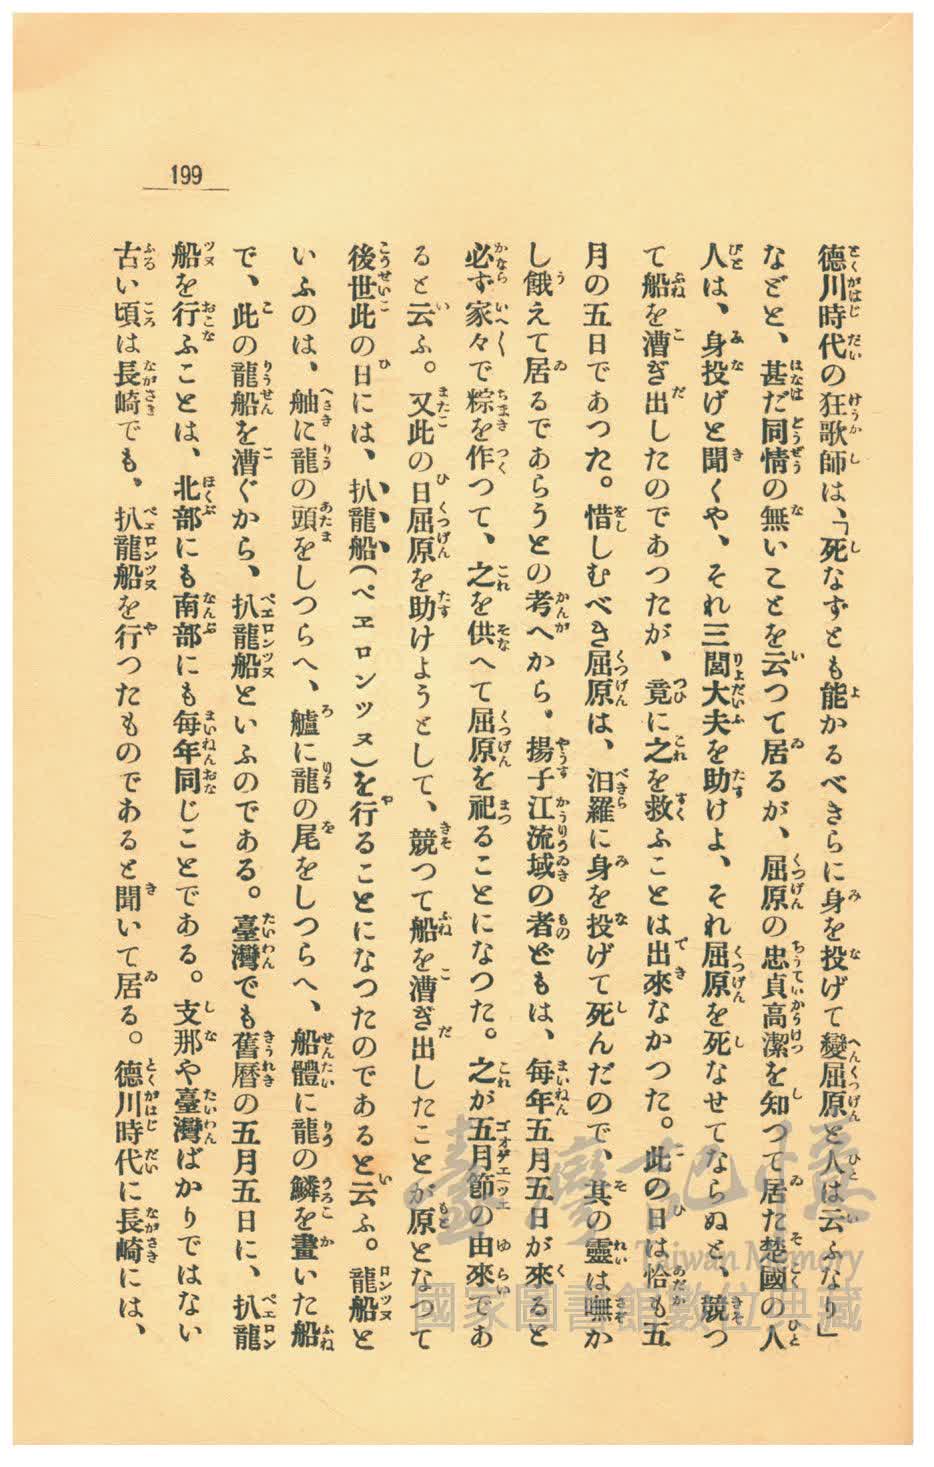 199
德川時代の狂歌師は、「死なずとも能かるべきらに身を投げて變屈原と人は云ふなり」
などと、甚だ同情の無いことを云つて居るが、屈原の忠貞高潔を知つて居た楚國の人
人は、身投げと聞くや、それ三閭大夫を助けよ、それ屈原を死なせてならぬと、競つ
て船を漕ぎ出したのであつたが、竟に之を救ふことは出來なかつた。此の日は恰も五
月の五日であつた。惜しむべき屈原は、汨羅に身を投げて死んだので、其の靈は嘸か
し餓えて居るであらうとの考へから、揚子江流域の者どもは、每年五月五日が來ると
必ず家々で粽を作つて、之を供へて屈原を祀ることになつた。之が五月節の由來であ
ると云ふ。又此の日屈原を助けようとして、競つて船を漕ぎ出したことが原となつて
後世此の日には、扒龍船(ペエロンツヌ)を行ることになつたのであると云ふ。龍船と
いふのは、舳に龍の頭をしつらへ、艫に龍の尾をしつらへ、船體に龍の鱗を畫いた船
で、此の龍船を漕ぐから、扒龍船といふのである。臺灣でも舊曆の五月五日に、扒龍
船を行ふことは、北部にも南部にも每年同じことである。支那や臺灣ばかりではない
古い頃は長崎でも、扒龍船を行つたものであると聞いて居る。德川時代に長崎には、
臺灣記憶
Taiwan Memory
國家圖書館數位典藏